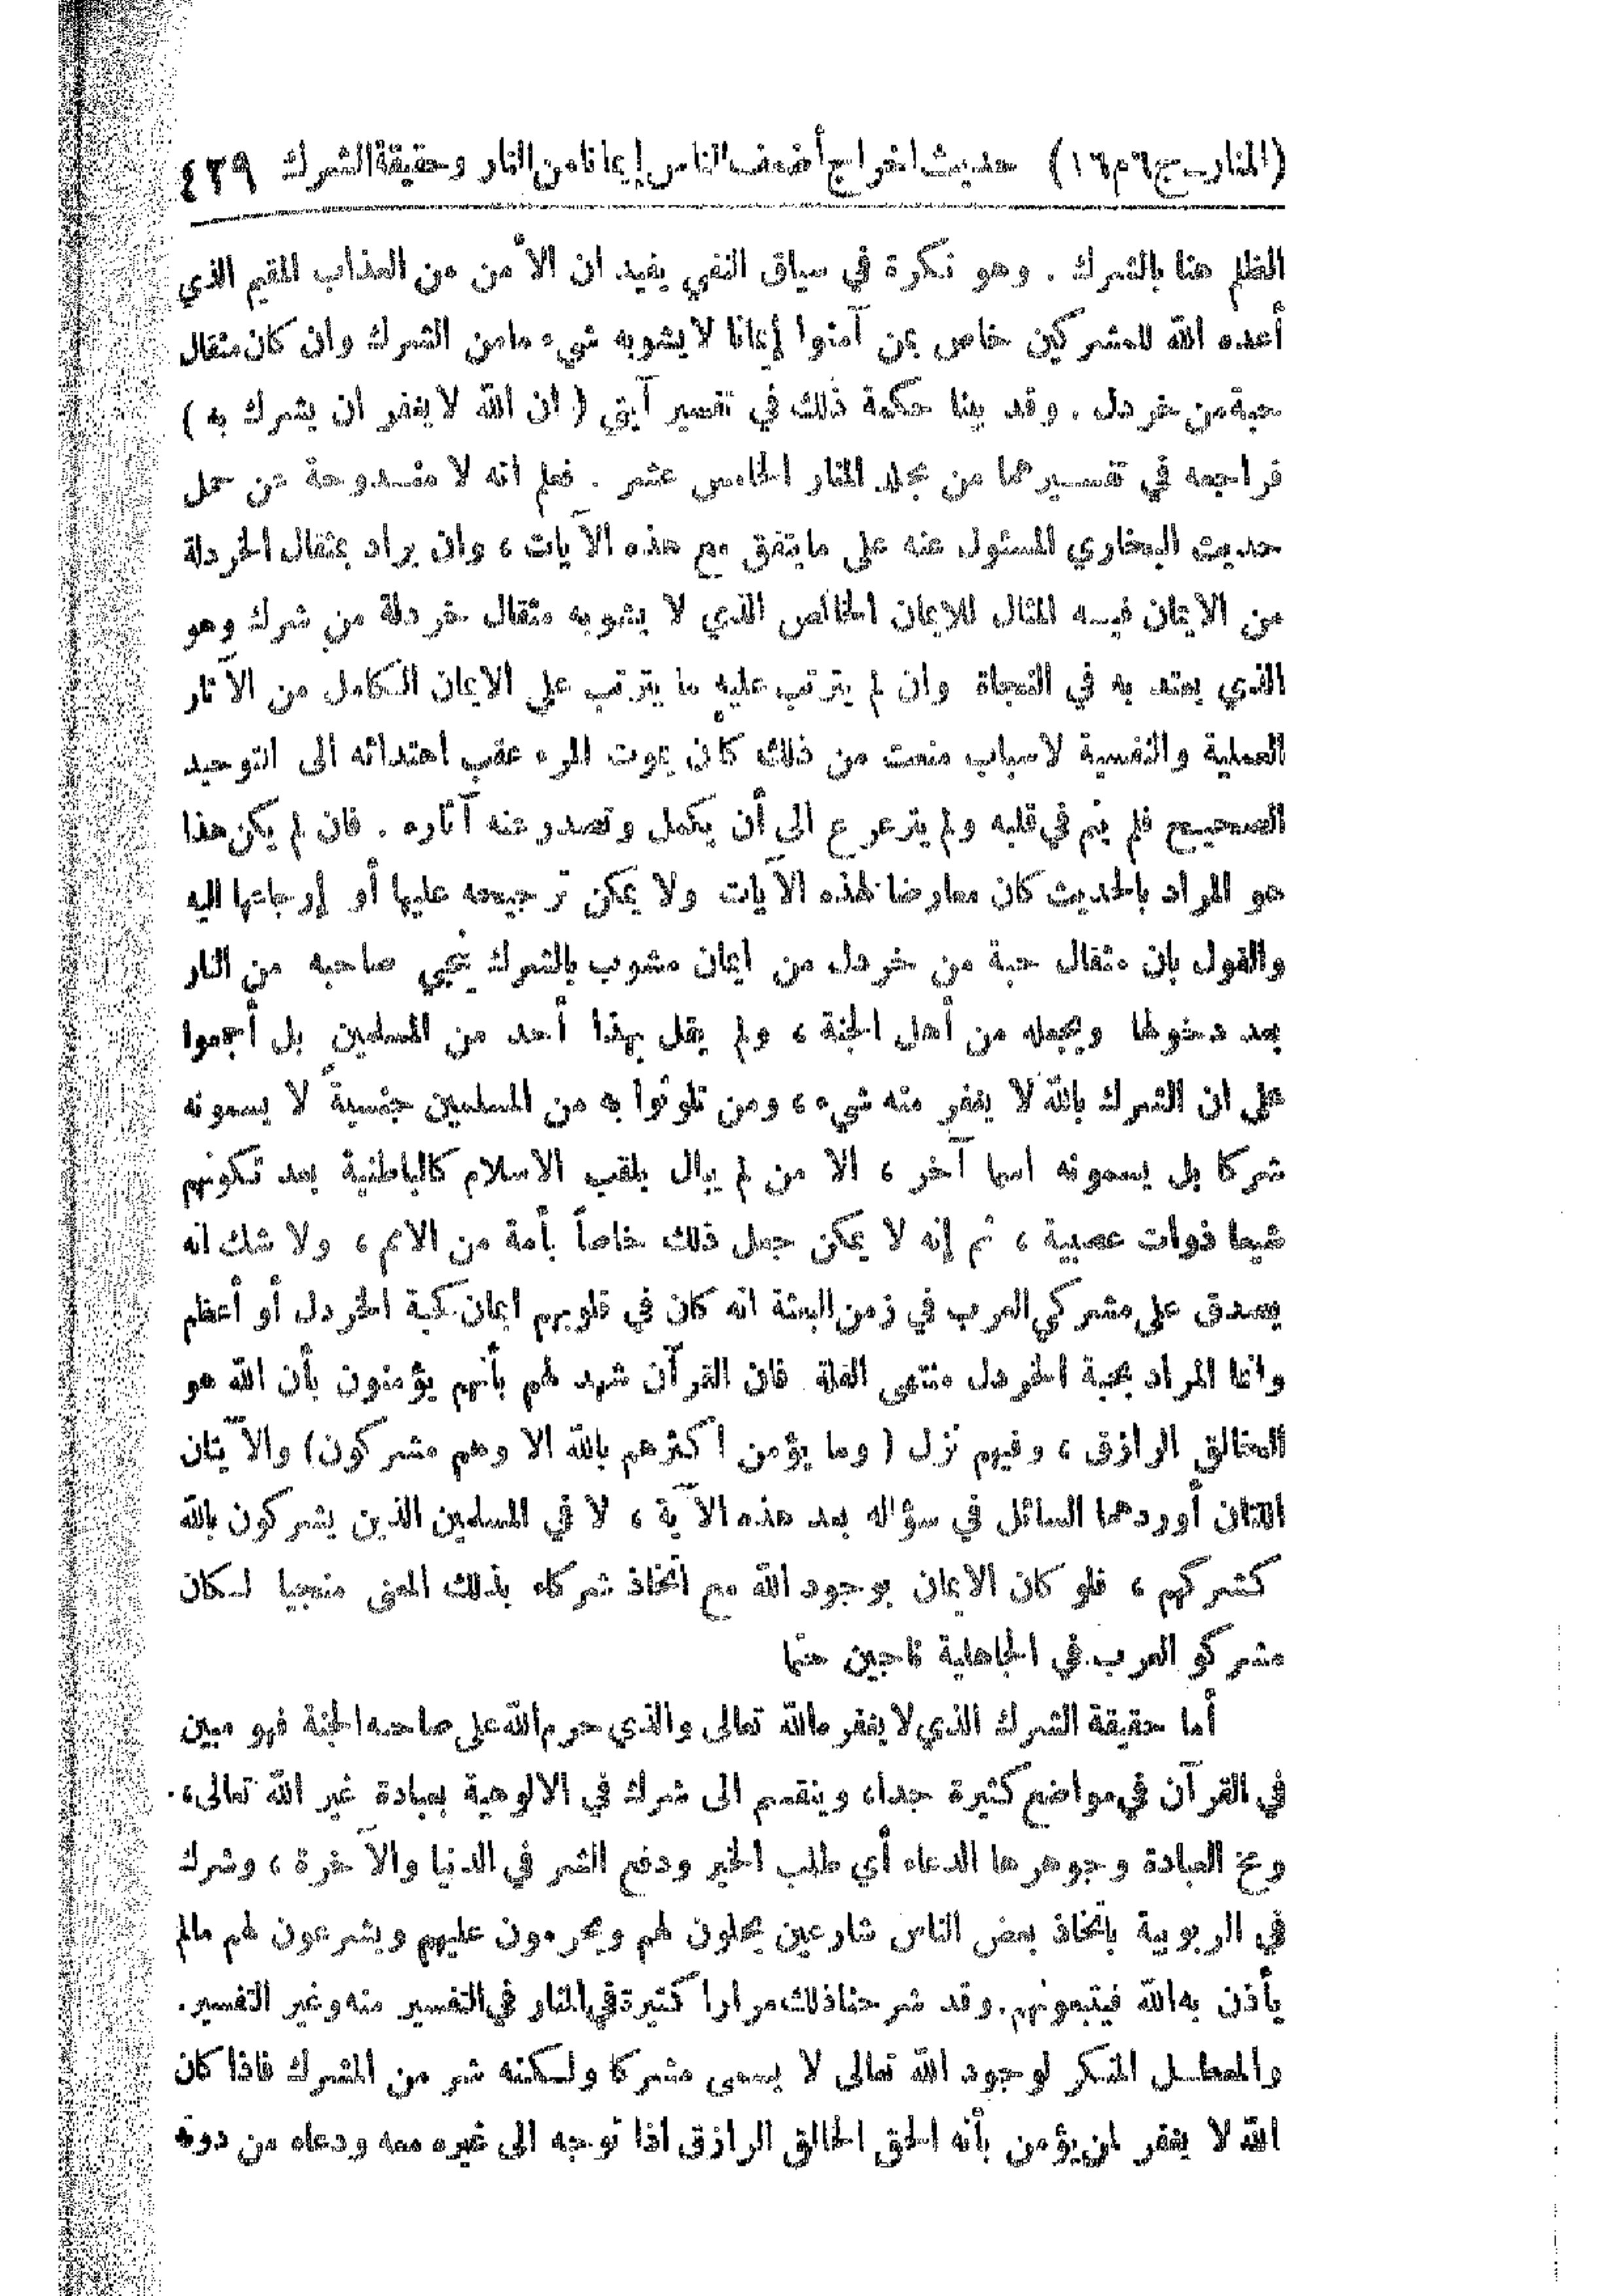 (المنار ـ ج ٦ م ١٦) حديث اخراج أضعف الناس إيمانا من النار وحقيقة الشرك ٤٢٩
الظلم هنا بالشرك . وهو نكرة في سياق النفي يفيد ان الأمن من العذاب المقيم الذي
أعده الله للمشركين خاص بمن آمنوا إيمانا لا يشوبه شيء ما من الشرك وان كان مثقال
حبة من خردل . وقد بينا حكمة ذلك في تفسير آيتي ( ان الله لا يغفر ان يشرك به )
فراجعه في تفسيرهما من مجلد المنار الخامس عشر . فعلم انه لا مندوحة عن حمل
حديث البخاري المسئول عنه على ما يتفق مع هذه الآيات ، وان يراد بمثقال الخردلة
من الايمان فيه المثال للايمان الخالص الذي لا يشوبه مثقال خردلة من شرك وهو
الذي يعتد به في النجاة وان لم يترتب عليه ما يترتب على الايمان الكامل من الآثار
العملية والنفسية لاسباب منعت من ذلك كأن يموت المرء عقب اهتدائه الى التوحيد
الصحيح فلم ينم في قلبه ولم يترعرع الى أن يكمل وتصدر عنه آثاره . فان لم يكن هذا
هو المراد بالحديث كان معارضا لهذه الآيات ولا يمكن ترجيحه عليها أو إرجاعها اليه
والقول بان مثقال حبة من خردل من ايمان مشوب بالشرك ينجي صاحبه من النار
بعد دخولها ويجعله من أهل الجنة ، ولم يقل بهذا أحد من المسلمين بل أجمعوا
على ان الشرك بالله لا يغفر منه شيء ، ومن تلوثوا به من المسلمين جنسية لا يسمونه
شركا بل يسمونه اسما آخر ، الا من لم يبال بلقب الاسلام كالباطنية بعد تكونهم
شيعا ذوات عصبية ، ثم إنه لا يمكن جعل ذلك خاصاً بأمة من الامم ، ولا شك انه
يصدق على مشركي العرب في زمن البعثة انه كان في قلوبهم ايمان كحبة الخردل أو أعظم
وانما المراد بحبة الخردل منتهى القلة فان القرآن شهد لهم بأنهم يؤمنون بأن الله هو
الخالق الرازق ، وفيهم نزل ( وما يؤمن أكثرهم بالله الا وهم مشركون ) والآيتان
اللتان أوردهما السائل في سؤاله بعد هذه الآية ، لا في المسلمين الذين يشركون بالله
كشركهم ، فلو كان الايمان بوجود الله مع اتخاذ شركاء بذلك المعنى منجيا لكان
مشركو العرب في الجاهلية ناجين حتما
أما حقيقة الشرك الذي لا يغفره الله تعالى والذي حرم الله على صاحبه الجنة فهو مبين
في القرآن في مواضع كثيرة جدا ، وينقسم الى شرك في الالوهية بعبادة غير الله تعالى ،
ومخ العبادة وجوهرها الدعاء أي طلب الخير ودفع الشر في الدنيا والآخرة ، وشرك
في الربوبية باتخاذ بعض الناس شارعين يحلون لهم ويحرمون عليهم ويشرعون لهم مالم
يأذن به الله فيتبعونهم . وقد شرحنا ذلك مرارا كثيرة في المنار في التفسير منه وغير التفسير .
والمعطل المنكر لوجود الله تعالى لا يسمى مشركا ولكنه شر من المشرك فاذا كان
الله لا يغفر لمن يؤمن بأنه الحق الخالق الرازق اذا توجه الى غيره معه ودعاه من دونه